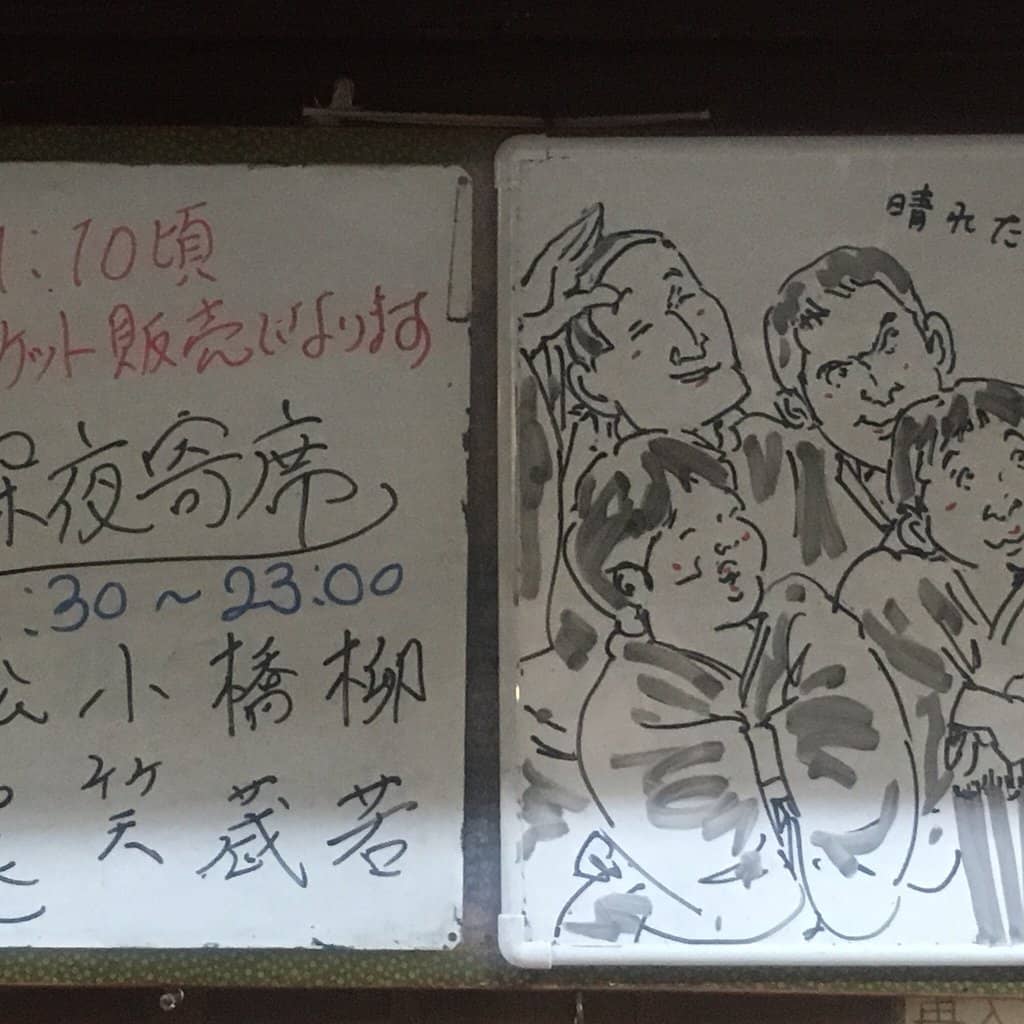 1:10頃
ケット販売になります
深夜寄席
:30～23:00
松 小 橋 柳
笑 蔵 若
晴れた
再入